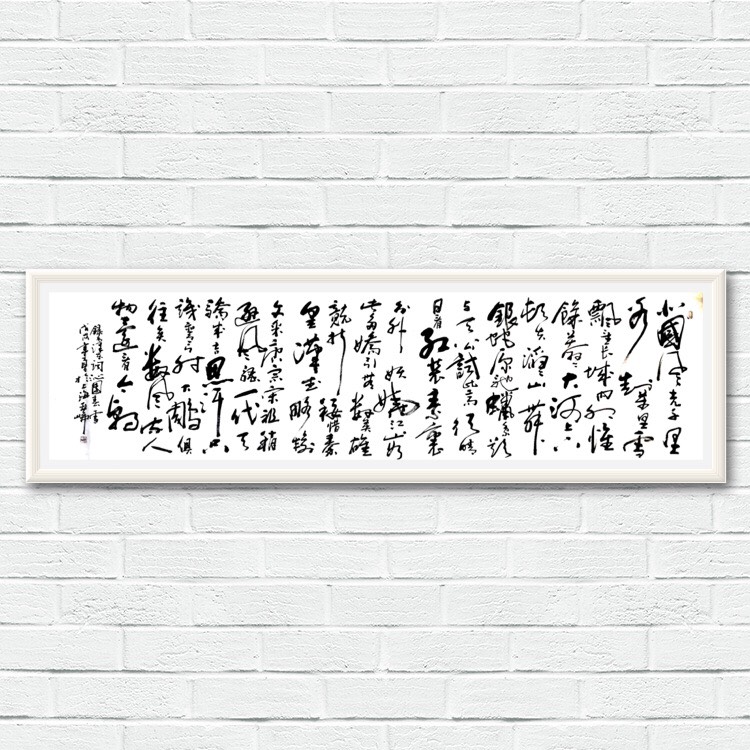 北國風光千里
冰封萬里雪
飄望長城内外惟
餘莽莽大河上下
頓失滔滔山舞
銀蛇原馳蠟象欲
与天公試比高須晴
日看紅裝素裹
分外妖嬈江山如
此多嬌引無數英雄
競折腰惜秦
皇漢武略輸
文采唐宗宋祖稍
遜風騷一代天
驕成吉思汗只
識彎弓射大雕俱
往矣數風流人
物還看今朝
詞沁園春雪
上海